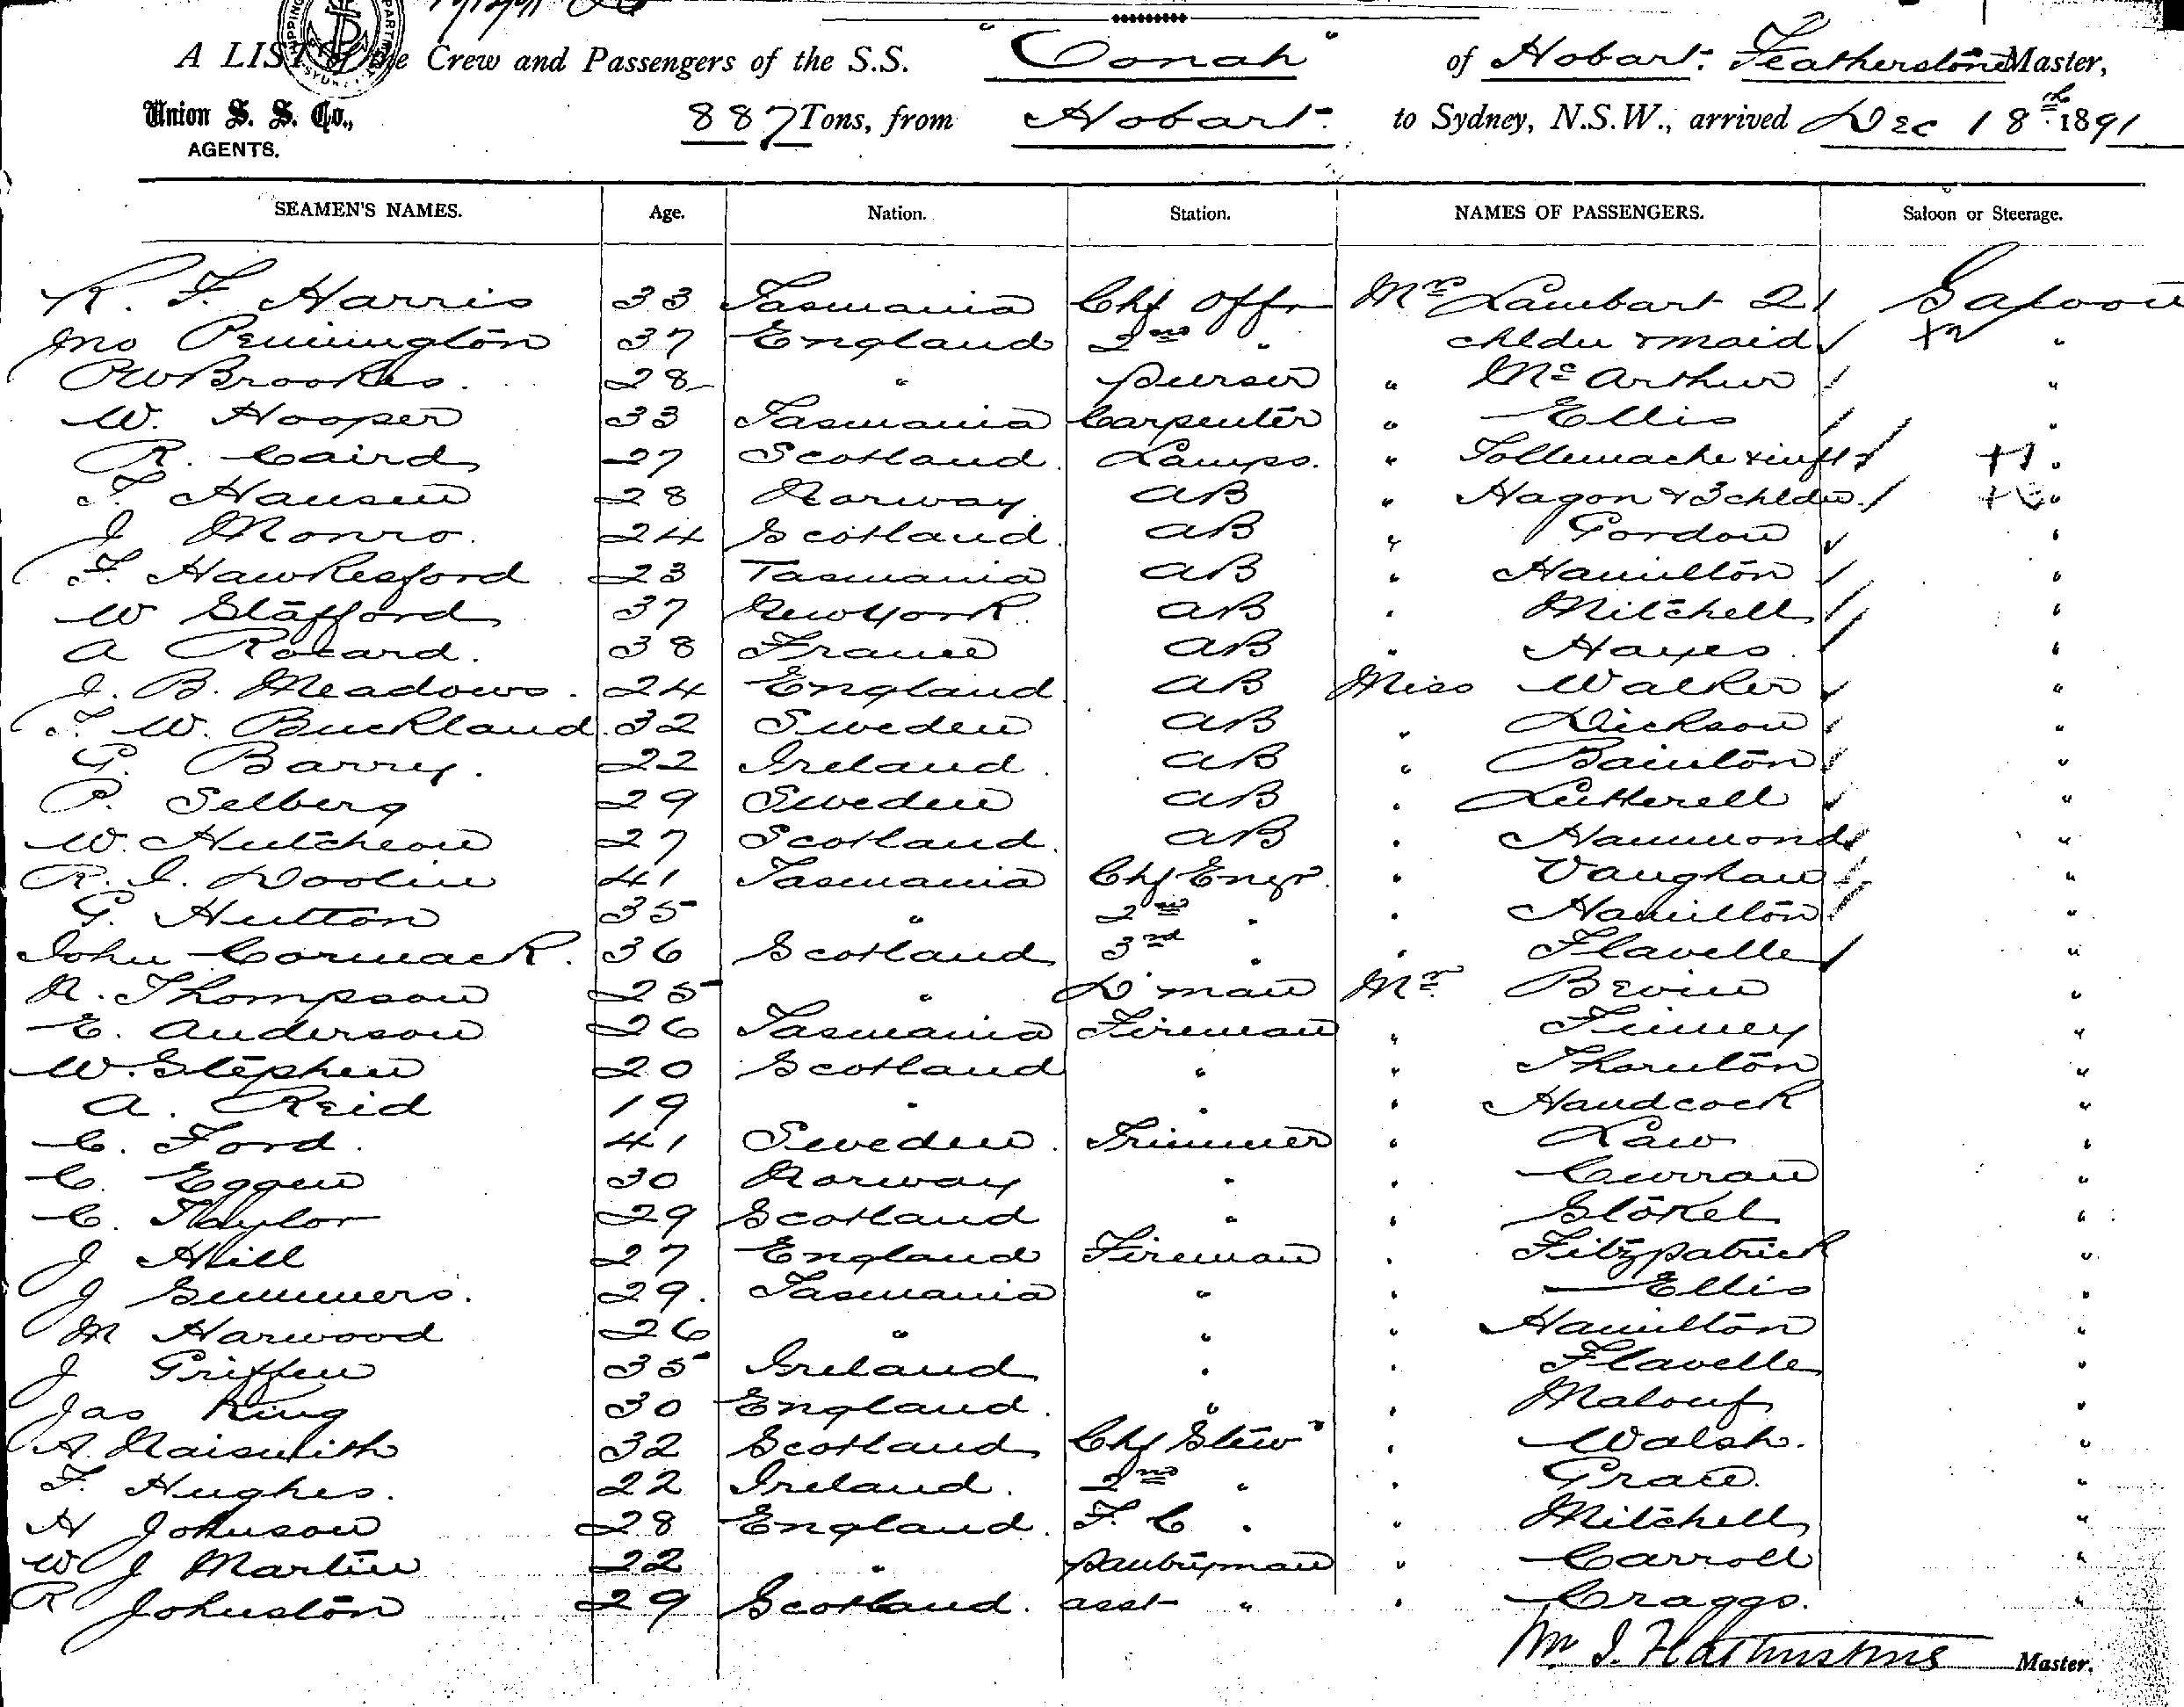 A LIST of the Crew and Passengers of the S.S. "Oonah" of Hobart. Featherstone Master,
Union S. S. Co., 887 Tons, from Hobart to Sydney, N.S.W., arrived Dec 18th 1891
AGENTS.
SEAMEN'S NAMES. Age. Nation. Station. NAMES OF PASSENGERS. Saloon or Steerage.
R. F. Harris 33 Tasmania Chf Offr Mrs Lambart 2 Saloon
Jno Pennington 37 England 2nd " chldn & maid "
PW Brookes. 28 " purser " McArthur "
W. Hooper 33 Tasmania Carpenter " Ellis "
R. Caird 27 Scotland Lamps. " Tollemache & inft "
T Hansen 28 Norway AB " Hagon & 3 chldn. "
J Monro. 24 Scotland AB " Gordon "
F. Hawkesford 23 Tasmania AB " Hamilton "
W Stafford 37 New York AB " Mitchell "
A Rotard. 38 France AB " Hayes "
J. B. Meadows. 24 England AB Miss Walker "
F. W. Buckland. 32 Sweden AB " Dickson "
G. Barry. 22 Ireland AB " Bainton "
P. Selberg 29 Sweden AB " Lutterell "
W. Hutcheon 27 Scotland AB " Hammond "
R. J. Doolin 41 Tasmania Chf Engr. " Vaughan "
G. Hutton 35 " 2nd " " Hamilton "
John Cormack. 36 Scotland 3rd " " Flavelle "
R. Thompson 25 " D'man Mr Bevin "
E. Anderson 26 Tasmania Fireman " Finney "
W. Stephen 20 Scotland " " Thornton "
A. Reid 19 " " " Handcock "
C. Ford. 41 Sweden Trimmer " Law "
C. Eggen 30 Norway " " Curran "
C. Taylor 29 Scotland " " Stokel "
J Hill 27 England Fireman " Fitzpatrick "
J Summers. 29. Tasmania " " Ellis "
M Harwood 26 " " " Hamilton "
J Griffen 35 Ireland " " Flavelle "
Jas King 30 England " " Malouf "
A. Naismith 32 Scotland Chf Stewd " Walsh. "
F. Hughes. 22 Ireland. 2nd " " Grace. "
H Johnson 28 England. F. C. " " Mitchell "
W J Martin 22 " pantryman " Carroll "
R Johnston 29 Scotland. asst " " Craggs. "
Master.